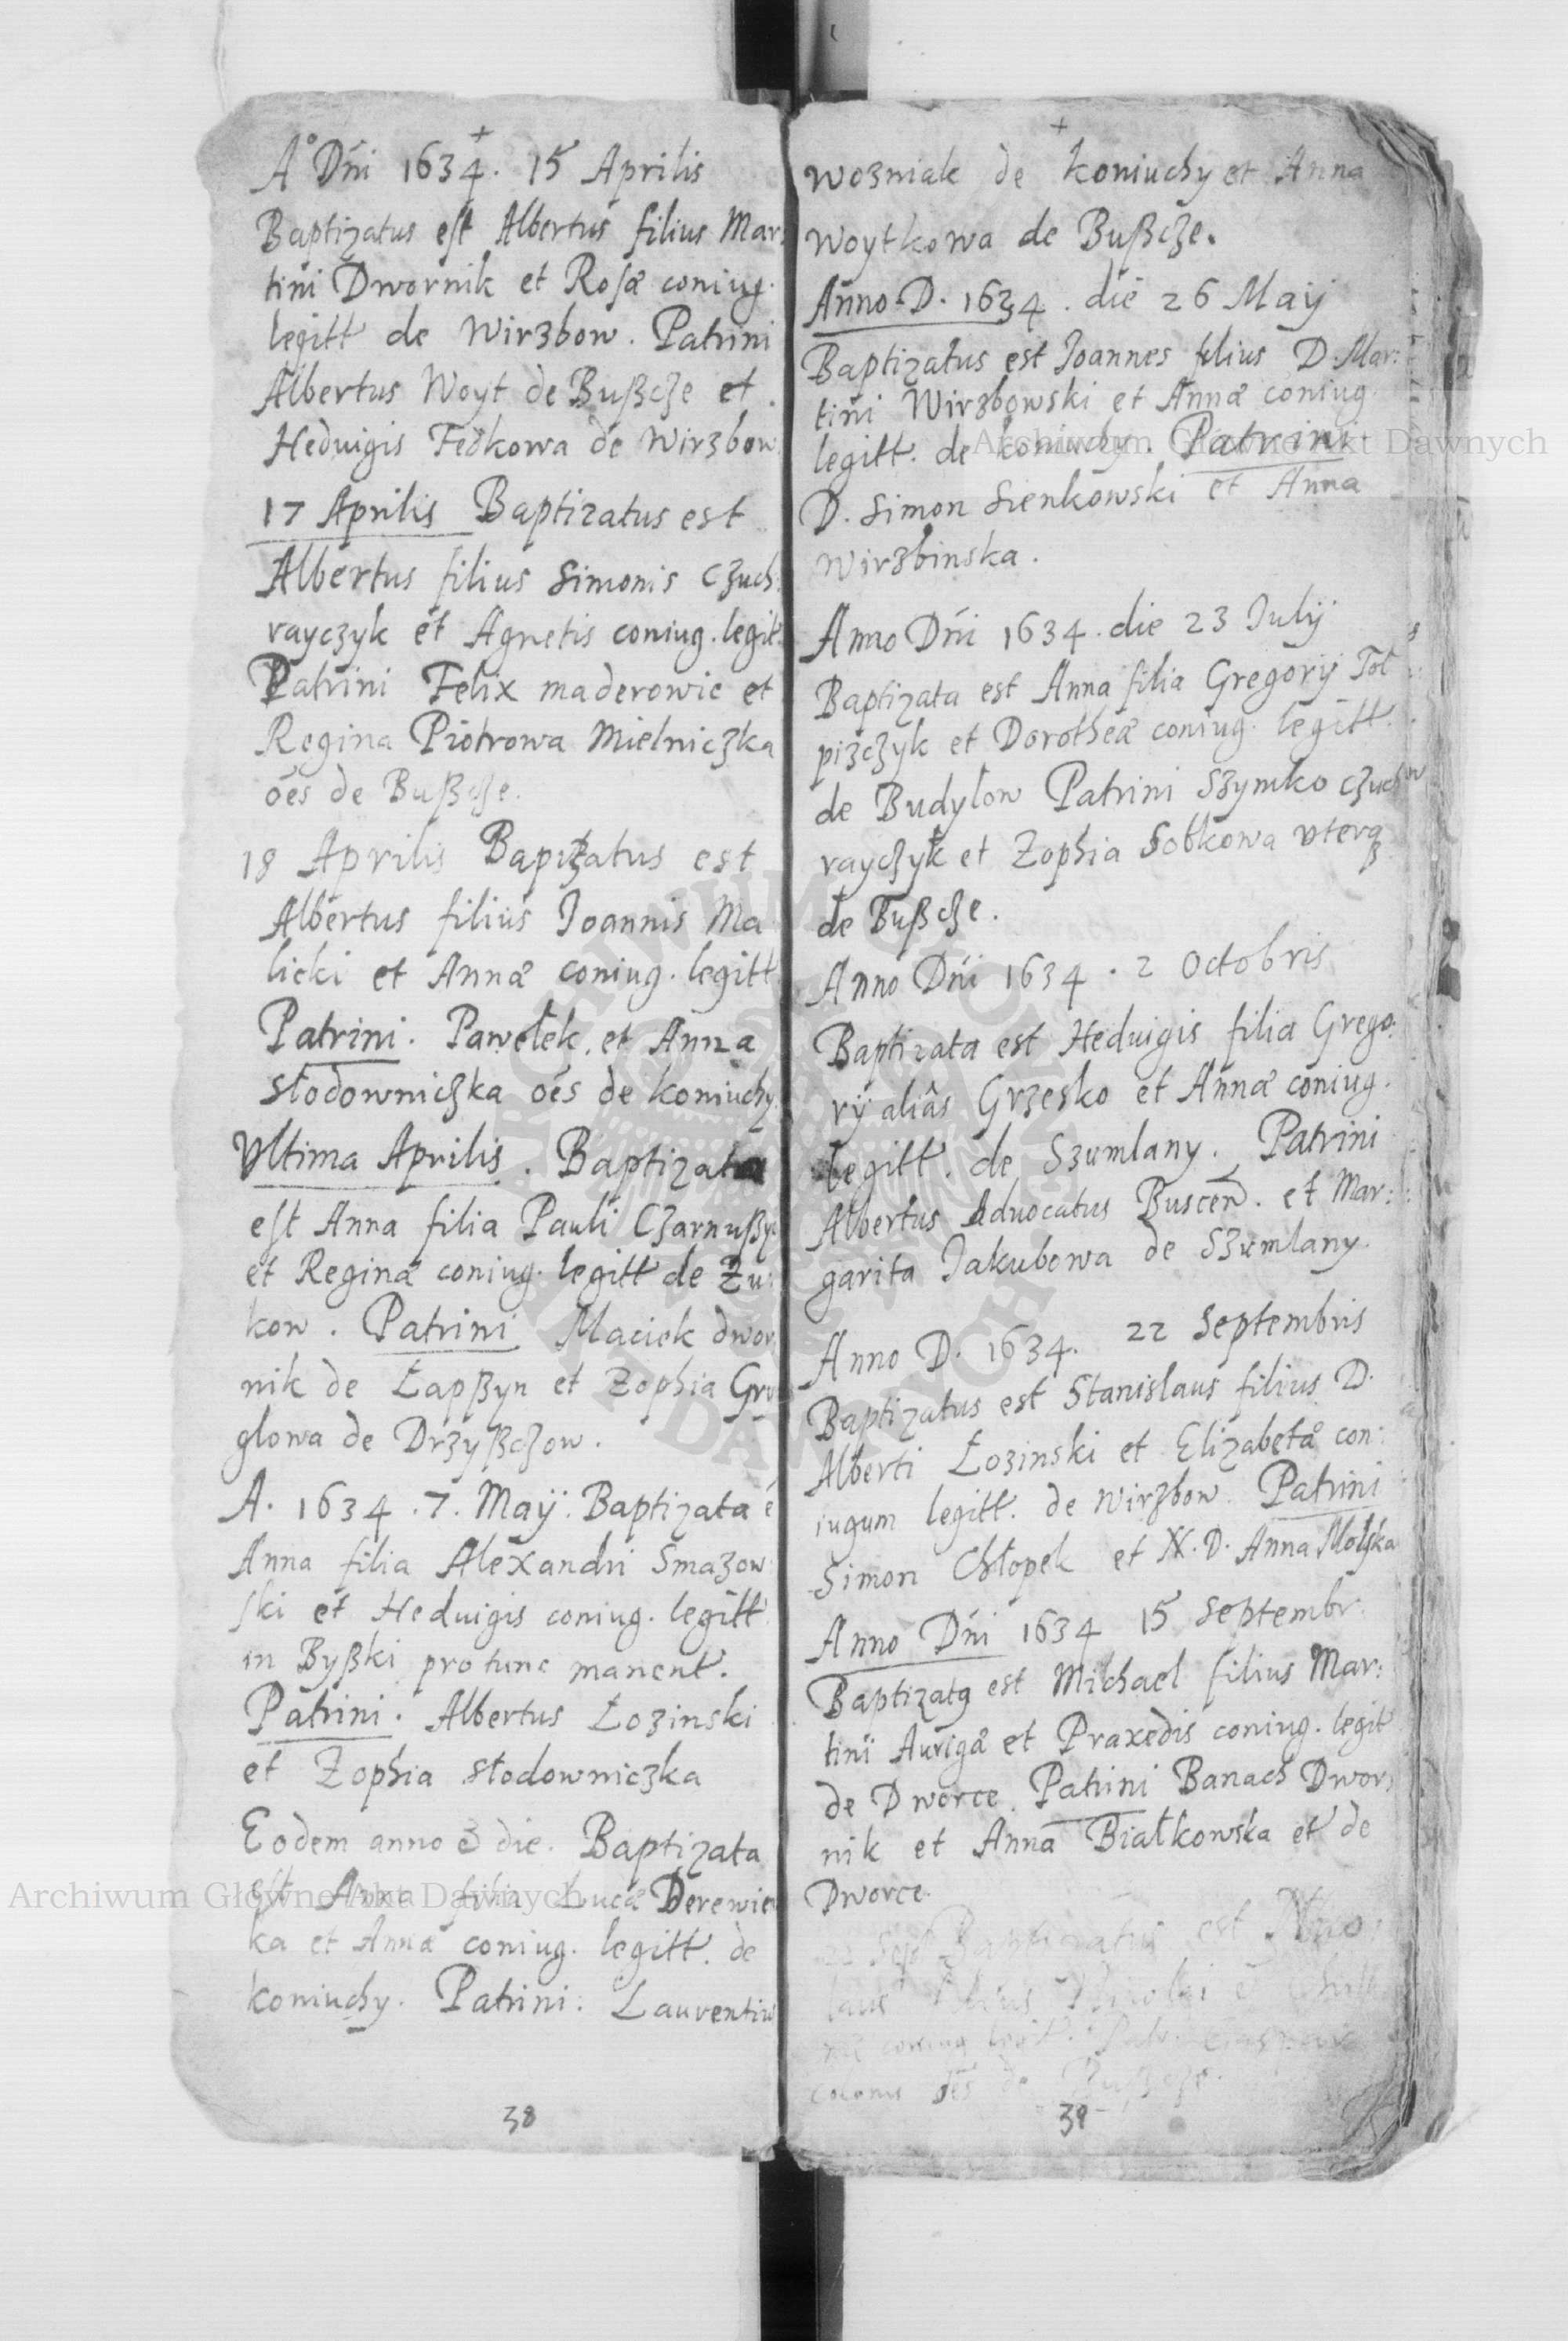 Aº Dñi 1634. 15 Aprilis
Baptizatus est Albertus filius Mar:
tini Dwornik et Rosæ coniug.
legitt de Wirzbow. Patrini
Albertus Woyt de Bußcze et
Heduigis Fedkowa de Wirzbow
17 Aprilis Baptizatus est
Albertus filius Simonis Czuch
rayczyk et Agnetis coniug. legit.
Patrini Felix maderowic et
Regina Piotrowa Mielniczka
oēs de Bußcze.
18 Aprilis Bapizatus est
Albertus filius Joannis Ma
licki et Annæ coniug. legitt
Patrini. Pawełek, et Anna
słodowniczka oēs de koniuchy
Vltima Aprilis. Baptizata
est Anna filia Pauli Czarnußy
et Reginæ coniug. legitt de Żu:
kow. Patrini Maciek dwor
nik de Łapßyn et Zophia Gru
glowa de Drzyßczow.
A. 1634. 7. Maÿ. Baptizata ē
Anna filia Alexandri Smazow
ski et Heduigis coniug. legitt
in Byßki pro tunc manent.
Patrini. Albertus Łozinski
et Zophia słodowniczka
Eodem anno & die. Baptizata
est Anna filia Lucæ Derewien
ka et Annæ coniug. legitt. de
koniuchy. Patrini: Laurentius
38
wozniak de koniuchy et Anna
woytkowa de Bußcze.
Anno D. 1634. die 26 Maÿ
Baptizatus est Joannes filius D. Mar:
tini Wirzbowski et Annæ coniug.
legitt. de koniuchy. Patrini
D. Simon Sienkowski et Anna
Wirzbinska.
Anno Dñi 1634. die 23 Julÿ
Baptizata est Anna filia Gregorÿ Toł
pizczyk et Dorotheæ coniug. legitt.
de Budyłow Patrini Szymko Czuch
rayczyk et Zophia Sobkowa vterq3
de Bußcze.
Anno Dñi 1634. 2 Octobris
Baptizata est Heduigis filia Grego:
rÿ aliâs Grzesko et Annæ coniug.
legitt. de Szumlany. Patrini
Albertus Aduocatus Buscen̄. et Mar:
garita Jakubowa de Szumlany.
Anno D. 1634. 22 Septembris
Baptizatus est Stanislaus filius D.
Alberti Łozinski et Elizabetæ con:
iugum legitt. de Wirzbow. Patrini
Simon Chłopek et N. D. Anna Molska
Anno Dñi 1634 15 Septembr.
Baptizatꝰ est Michael filius Mar:
tini Aurigæ et Praxedis coniug. legit
de Dworce. Patrini Banach Dwor
nik et Anna Białkowska et de
Dworce.
22 Sept Baptizatus est Nico
laus filius Nicolai &
coniug legit. Patr. Gaspar
colonus oēs de Bußcze.
39
Archiwum Główne Akt Dawnych
Archiwum Główne Akt Dawnych
ARCHIWUM GŁÓWNE AKT DAWNYCH